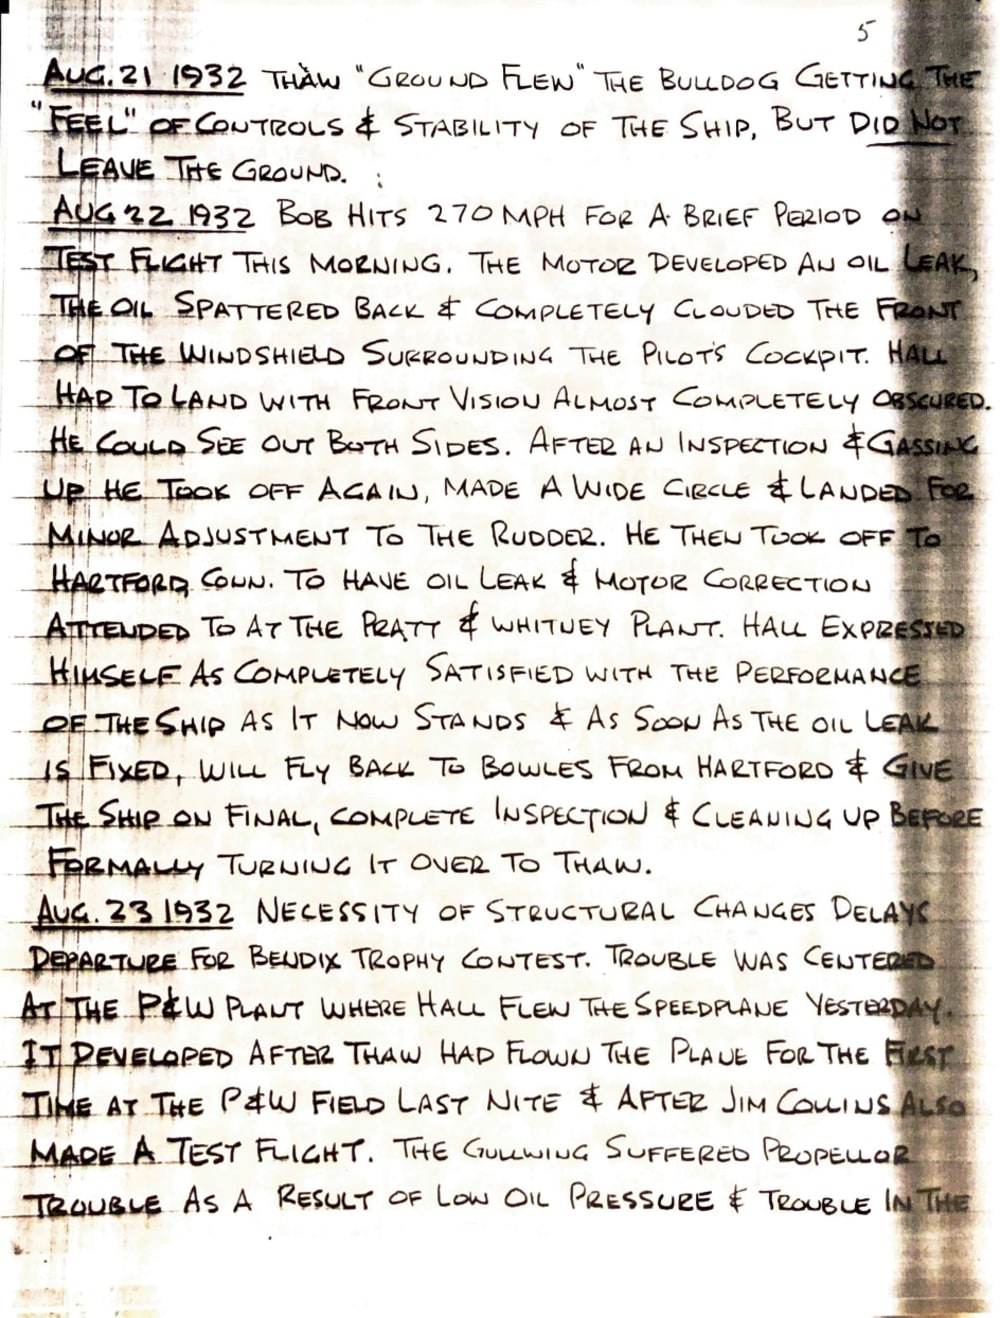 5
AUG. 21 1932 THAW "GROUND FLEW" THE BULLDOG GETTING THE
"FEEL" OF CONTROLS & STABILITY OF THE SHIP, BUT DID NOT
LEAVE THE GROUND.
AUG 22 1932 BOB HITS 270 MPH FOR A BRIEF PERIOD ON
TEST FLIGHT THIS MORNING. THE MOTOR DEVELOPED AN OIL LEAK,
THE OIL SPATTERED BACK & COMPLETELY CLOUDED THE FRONT
OF THE WINDSHIELD SURROUNDING THE PILOT'S COCKPIT. HALL
HAD TO LAND WITH FRONT VISION ALMOST COMPLETELY OBSCURED.
HE COULD SEE OUT BOTH SIDES. AFTER AN INSPECTION & GASSING
UP HE TOOK OFF AGAIN, MADE A WIDE CIRCLE & LANDED FOR
MINOR ADJUSTMENT TO THE RUDDER. HE THEN TOOK OFF TO
HARTFORD, CONN. TO HAVE OIL LEAK & MOTOR CORRECTION
ATTENDED TO AT THE PRATT & WHITNEY PLANT. HALL EXPRESSED
HIMSELF AS COMPLETELY SATISFIED WITH THE PERFORMANCE
OF THE SHIP AS IT NOW STANDS & AS SOON AS THE OIL LEAK
IS FIXED, WILL FLY BACK TO BOWLES FROM HARTFORD & GIVE
THE SHIP ON FINAL, COMPLETE INSPECTION & CLEANING UP BEFORE
FORMALLY TURNING IT OVER TO THAW.
AUG. 23 1932 NECESSITY OF STRUCTURAL CHANGES DELAYS
DEPARTURE FOR BENDIX TROPHY CONTEST. TROUBLE WAS CENTERED
AT THE P&W PLANT WHERE HALL FLEW THE SPEEDPLANE YESTERDAY.
IT DEVELOPED AFTER THAW HAD FLOWN THE PLANE FOR THE FIRST
TIME AT THE P&W FIELD LAST NITE & AFTER JIM COLLINS ALSO
MADE A TEST FLIGHT. THE GULLWING SUFFERED PROPELLOR
TROUBLE AS A RESULT OF LOW OIL PRESSURE & TROUBLE IN THE